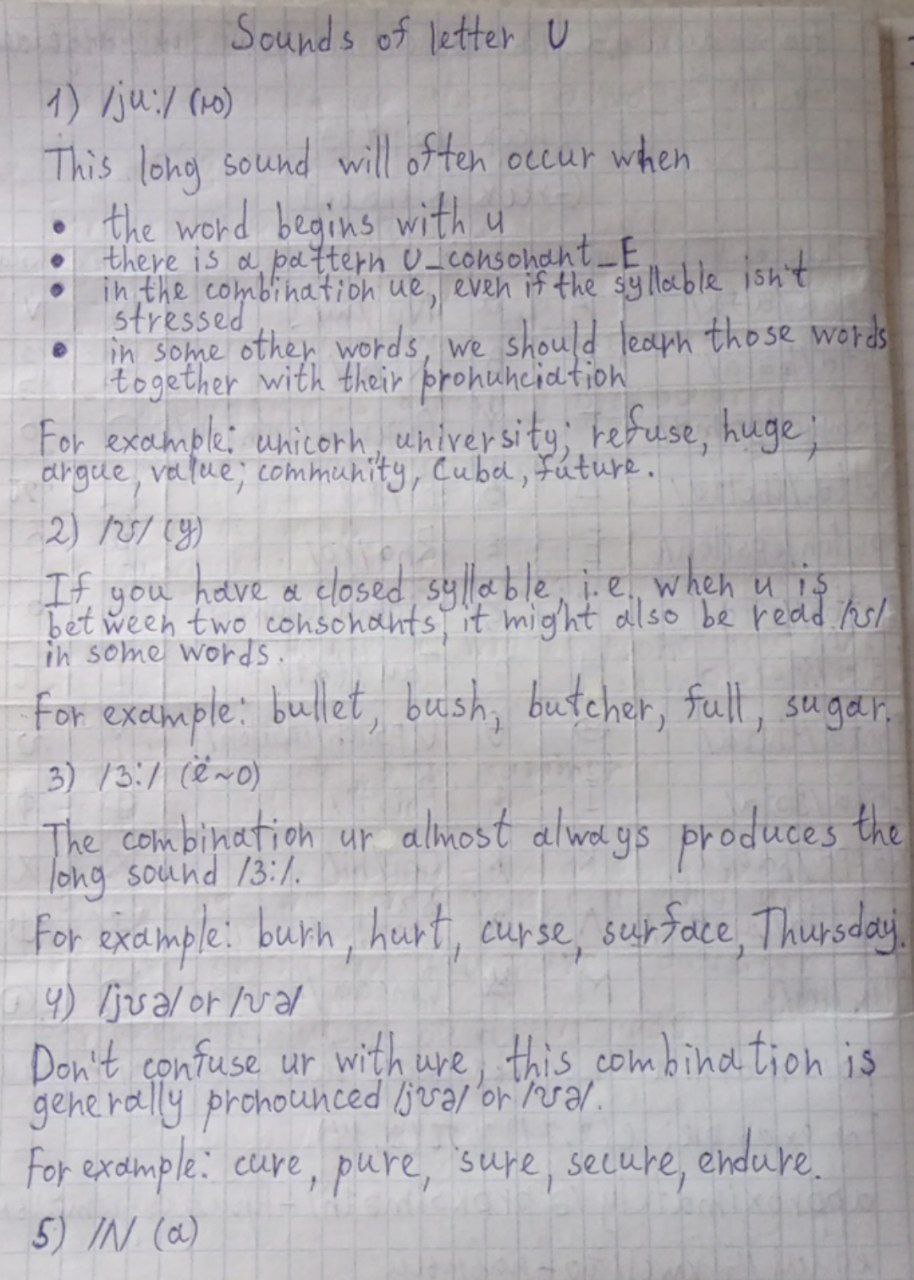 Sounds of letter U
1) /ju:/ (ю)
This long sound will often occur when
• the word begins with u
• there is a pattern U_consonant_E
• in the combination ue, even if the syllable isn't
stressed
• in some other words, we should learn those words
together with their pronunciation
For example: unicorn, university; refuse, huge;
argue, value; community, Cuba, future.
2) /ʊ/ (у)
If you have a closed syllable, i.e. when u is
between two consonants, it might also be read /ʊ/
in some words.
For example: bullet, bush, butcher, full, sugar.
3) /3:/ (ё~о)
The combination ur almost always produces the
long sound /3:/.
For example: burn, hurt, curse, surface, Thursday.
4) /jʊə/ or /ʊə/
Don't confuse ur with ure, this combination is
generally pronounced /jʊə/ or /ʊə/.
For example: cure, pure, sure, secure, endure.
5) /Λ/ (а)